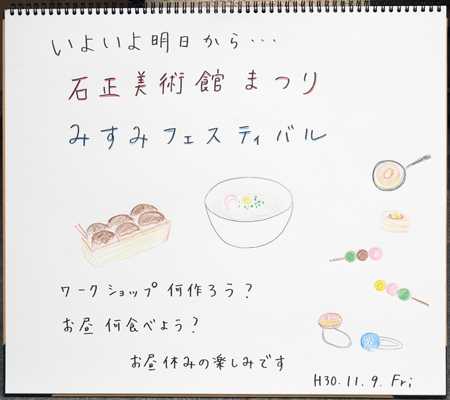 いよいよ明日から・・・
石正美術館まつり
みすみフェスティバル
ワークショップ何作ろう?
お昼何食べよう?
お昼休みの楽しみです
H30.11.9. Fri